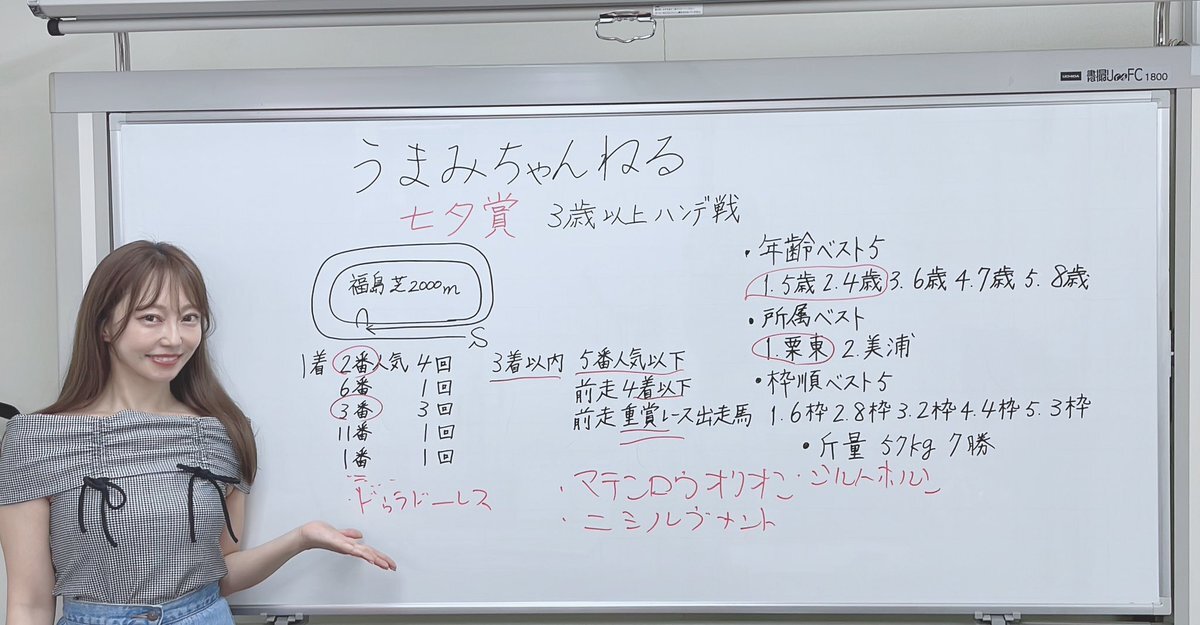 UCHIDA 書撮りUooFC 1800
うまみちゃんねる
七夕賞 3歳以上 ハンデ戦
福島芝2000m
S
1着 2番人気 4回
6番 1回
3番 3回
11番 1回
1番 1回
ドゥラドーレス
3着以内 5番人気以下
前走 4着以下
前走 重賞レース出走馬
・年齢ベスト5
1.5歳 2.4歳 3.6歳 4.7歳 5.8歳
・所属ベスト
1.栗東 2.美浦
・枠順ベスト5
1.6枠 2.8枠 3.2枠 4.4枠 5.3枠
・斤量 57kg 7勝
・マテンロウオリオン・シルトホルン
・ニシノルヴナント